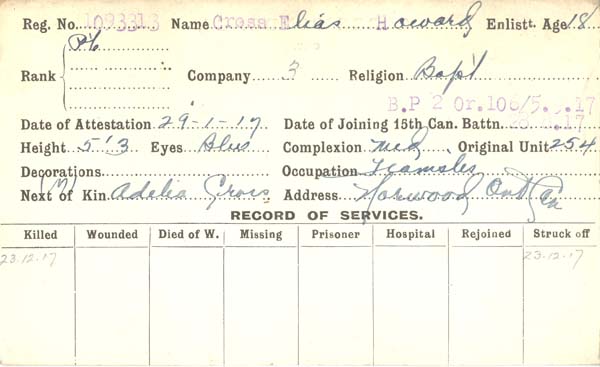 Reg. No. 1093313 Name Cross Elias Howard Enlistt. Age 18
Pte
Rank Company 3 Religion Bapt
B.P 2 Or. 106/5. .17
Date of Attestation 29-1-17 Date of Joining 15th Can. Battn. .17
Height 5'3 Eyes Blue Complexion Med Original Unit 254
Decorations Occupation Teamster
(M)
Next of Kin Adelia Cross Address Norwood Ont Can
RECORD OF SERVICES.
Killed Wounded Died of W. Missing Prisoner Hospital Rejoined Struck off
23.12.17 23.12.17